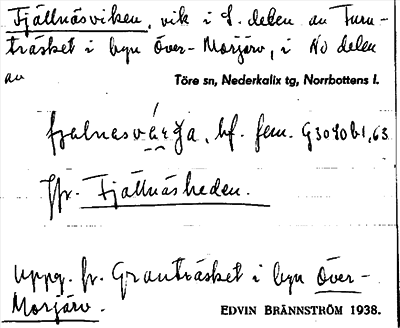 Fjällnäsviken, vik i S. delen av Turu-
träsket i byn Över-Morjärv, i No delen
av
Töre sn, Nederkalix tg, Norrbottens l.
bf. fem. G3090b1,63
Jfr. Fjällnäsheden.
Uppg. fr. Granträsket i byn Över-
Morjärv.
EDVIN BRÄNNSTRÖM 1938.